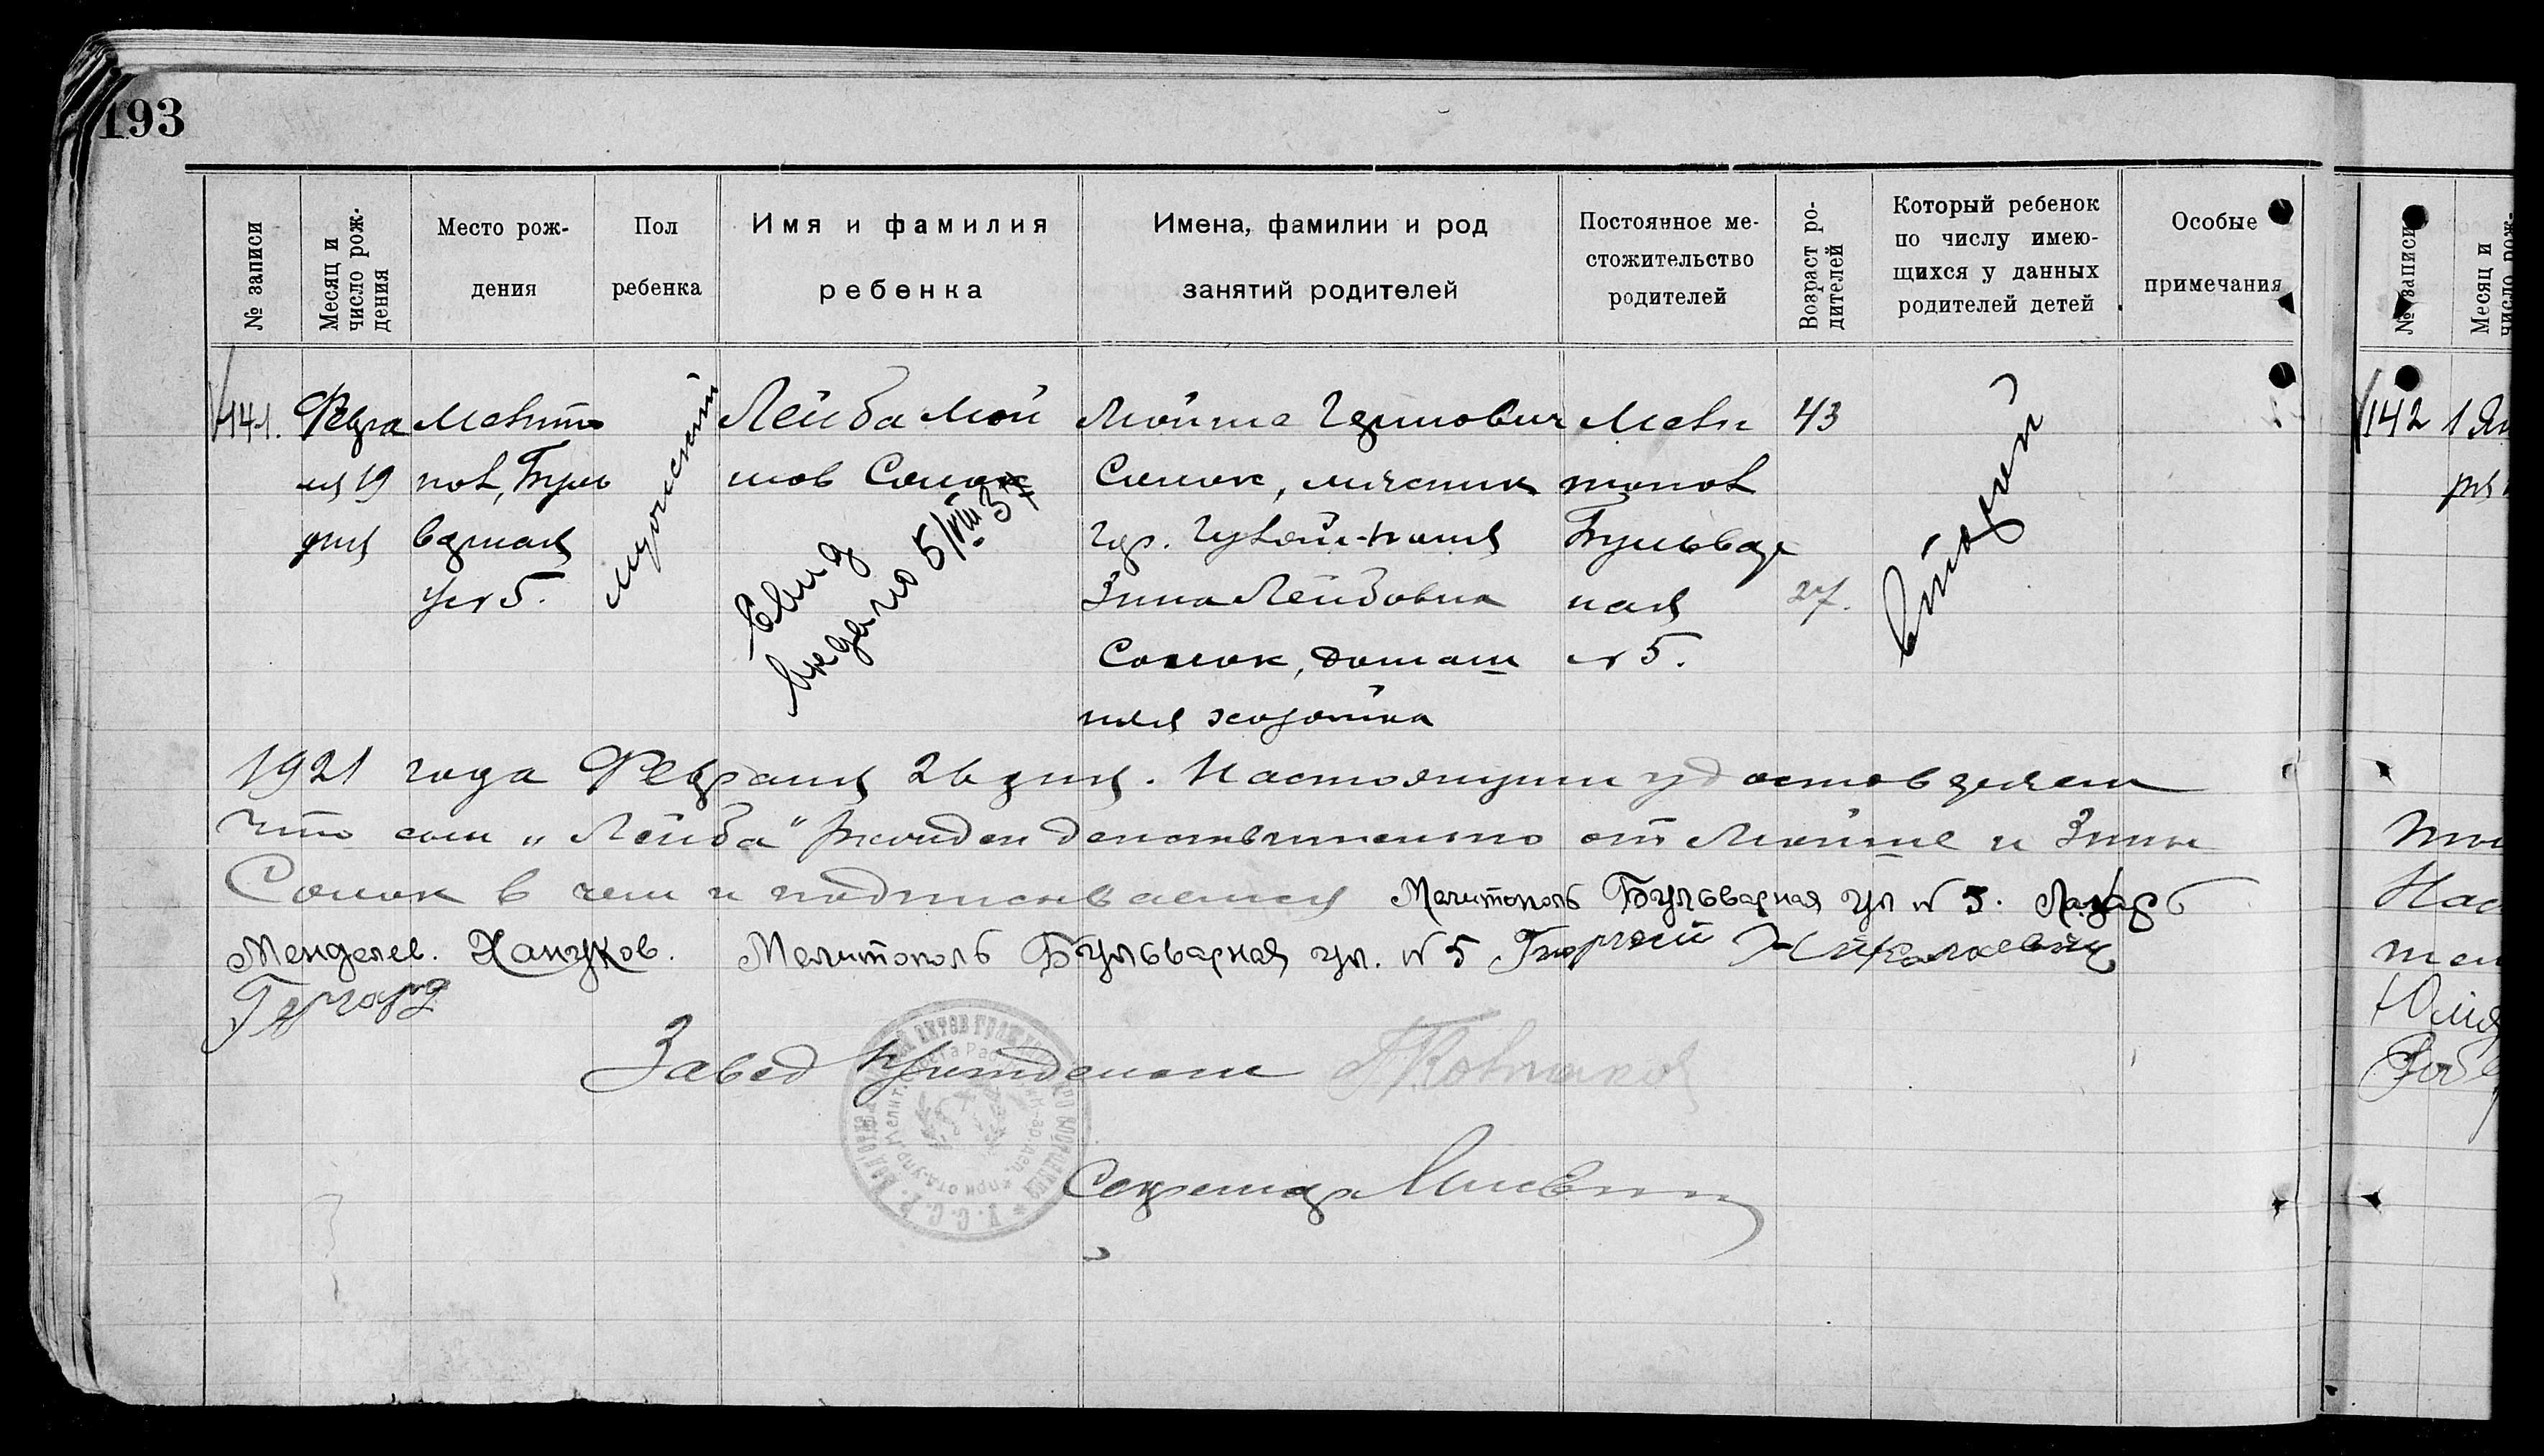 193
№ записи
Месяц и число рож-
дения
Место рож-
дения
Пол
ребенка
Имя и фамилия
ребенка
Имена, фамилии и род
занятий родителей
Постоянное ме-
стожительство
родителей
Возраст ро-
дителей
Который ребенок
по числу имею-
щихся у данных
родителей детей
Особые
примечания
141.
Февра
ля 19
дня
Мелито
пол, Буль
варная
ул № 5.
мужеский
Лейба Мой
шов Сомок
Свид
выдано 5/VIII 37
Мойше
Сомок, мясник
гр.
Зина Лейбовна
Сомок, домаш
няя хозяйка
Мели
тополь
Бульвар
ная
№ 5.
43
27.
второй
1921 года Февраля 26 дня. Настоящим удостоверяем
что сын „Лейба" рожден действительно от Мойше и Зины
Сомок в чем и подписываемся Мелитополь Бульварная ул № 5. Лазарь
Менделев. Хануков. Мелитополь Бульварная ул. № 5 Николаевич
Завед
Секретарь
№ записи
Месяц и
число рож-
142
1 Ян